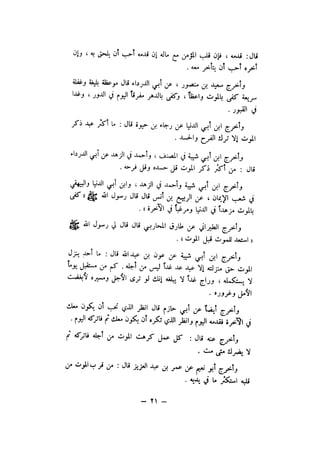 قال: قدمه ، فإن قلب المؤمن مع ماله إن قدمه أحب أن يلحق به ، وإن
أخره أحب أن يتأخر معه .
وأخرج سعيد بن منصور ، عن أبي الدرداء قال موعظة بليغة وغفلة
سريعة كفى بالموت واعظاً ، وكفى بالدهر مفرقاً اليوم في الدور ، وغدا
في القبور .
وأخرج ابن أبي الدنيا عن رجاء بن حيوة قال : ما أكثر عبد ذكر
الموت إلا ترك الفرح والحسد .
وأخرج ابن أبي شيبة في المصنف ، وأحمد في الزهد عن أبي الدرداء
قال : من أكثر ذكر الموت قل حسده وقل فرحه .
وأخرج ابن أبي شيبة وأحمد في الزهد ، وابن أبي الدنيا والبيهقي
في شعب الإيمان ، عن الربيع بن أنس قال قال رسول الله ﷺ « كفى
بالموت مزهداً في الدنيا ومرغباً في الآخرة » .
وأخرج الطبراني عن طارق المحاربي قال قال لي رسول الله ﷺ
« استعد للموت قبل الموت » .
وأخرج ابن أبي شيبة عن عون بن عبدالله قال : ما أحد ينزل
الموت حق منزلته إلا عبد عد غداً ليس من أجله . كم من مستقبل يوماً
لا يستكمله ، وراج غداً لا يبلغه إنك لو ترى الأجل ومسيره لأبغضت
الأمل وغروره .
وأخرج أيضاً عن أبي حازم قال انظر الذي تحب أن يكون معك
في الآخرة فقدمه اليوم وانظر الذي تكره أن يكون معك ثم فاتركه اليوم .
وأخرج عنه قال : كل عمل كرهت الموت من أجله فاتركه ثم
لا يضرك متى مت .
وأخرج أبو نعيم عن عمر بن عبد العزيز قال : من قرب الموت من
قلبه استكثر ما في يديه .
— ٢١ —